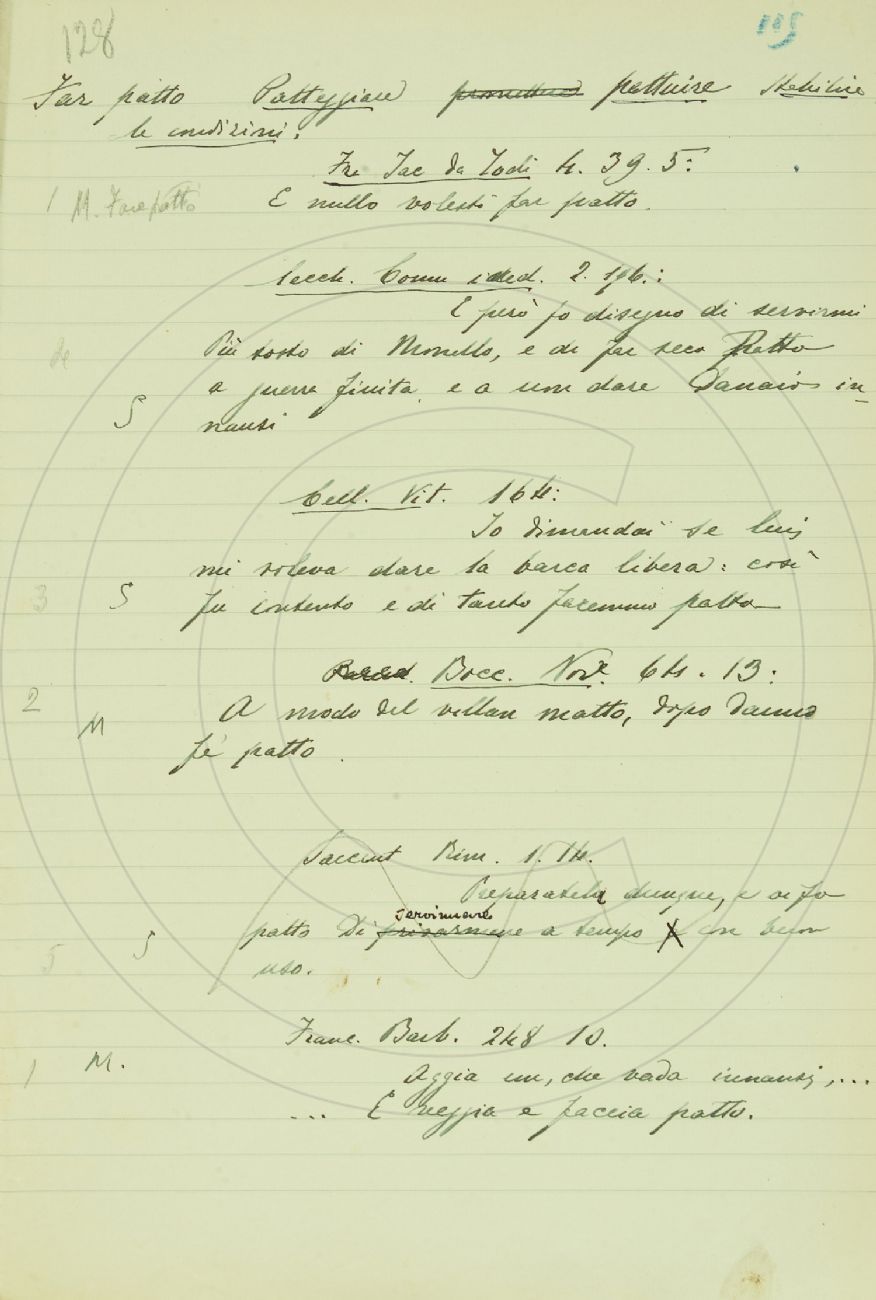 128
Far patto Patteggiare promettere pattuire stabilire
le condizioni:
Fra Jac da Todi 4. 39. 5:
1 M. Fare patto E nullo volesti far patto.
Cecch. Comm ined. 2. 196.:
E però fo disegno di servirmi
Più tosto di Monello, e di far seco Patto
a guerra finita e a non dare Danaio in-
S nanzi
Cell. Vit. 164:
Io dimandai se lui
mi voleva dare la barca libera: così
3 S fu contento e di tanto facemmo patto
Bocc. Nov. 64. 13:
2 M A modo del villan matto, dopo danno
fe' patto.
Saccent Rim. 1. 14.
Preparatela dunque, e vi fo
servirmene
patto di a tempo con buon
5 S uso.
Franc. Barb. 248 10.
1 M. Aggia un, che vada innanzi,...
... E veggia e faccia patto.